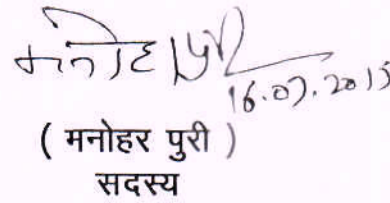 मनोहर पुरी
16.07.2015
( मनोहर पुरी )
सदस्य